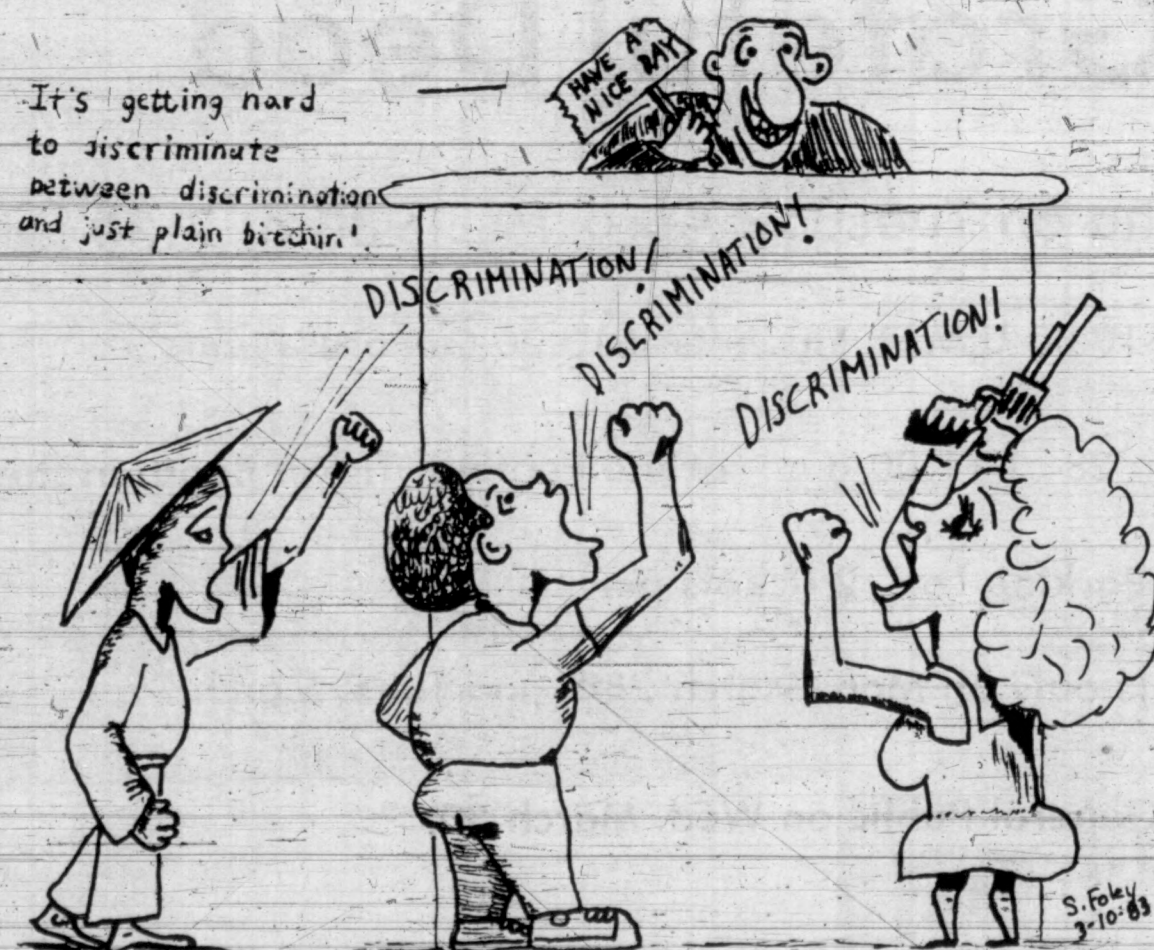 It's getting hard
to discriminate
between discrimination
and just plain bitchin'.
HAVE A
NICE DAY
DISCRIMINATION!
DISCRIMINATION!
DISCRIMINATION!
S. Foley
3-10-83